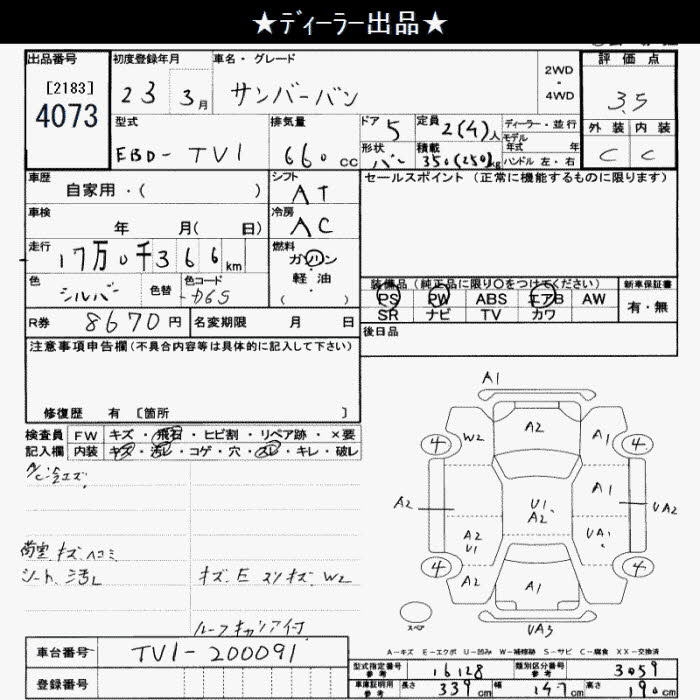 ★ディーラー出品★
出品番号
[2183]
4073
初度登録年月
23 3月
車名・グレード
サンバーバン
2WD
・
4WD
評価点
3.5
外装 内装
C C
型式
EBD-TV1
排気量
660cc
ドア
5
定員
2(4)人
形状
バン
積載
350(250)kg
ディーラー・並行
モデル
年式 年
ハンドル 左・右
車歴
自家用・( )
シフト
AT
車検
年 月( 日)
冷房
AC
走行
17万0千366km
燃料
ガソリン
軽油
( ・ )
色
シルバー
色替
色コード
D6S
R券
8670円
名変期限 月 日
セールスポイント(正常に機能するものに限ります)
装備品(純正品に限り〇をつけてください)
PS PW ABS エアB AW
SR ナビ TV カワ
新車保証書
有・無
後日品
注意事項申告欄(不具合内容等は具体的に記入して下さい)
修復歴 有 [箇所 ]
検査員 FW キズ・飛石・ヒビ割・リペア跡・×要
記入欄 内装 キズ・汚レ・コゲ・穴・スレ・キレ・破レ
荷室 キズ ヘコミ
シート
W2
ルーフキャリア付
A1
4 W2 A2 A1 4
A2 U1 A2 A1 UA2
A2 U1 UA1
4 A2 A1 4
スペア
UA3
A-キズ E-エクボ U-凹み W-補修跡 S-サビ C-腐食 XX-交換済
車台番号 TV1-200091
登録番号
型式指定番号 参考 16128
類別区分番号 参考 3059
車庫証明用 参考 長さ 339cm 幅 147cm 高さ 190cm